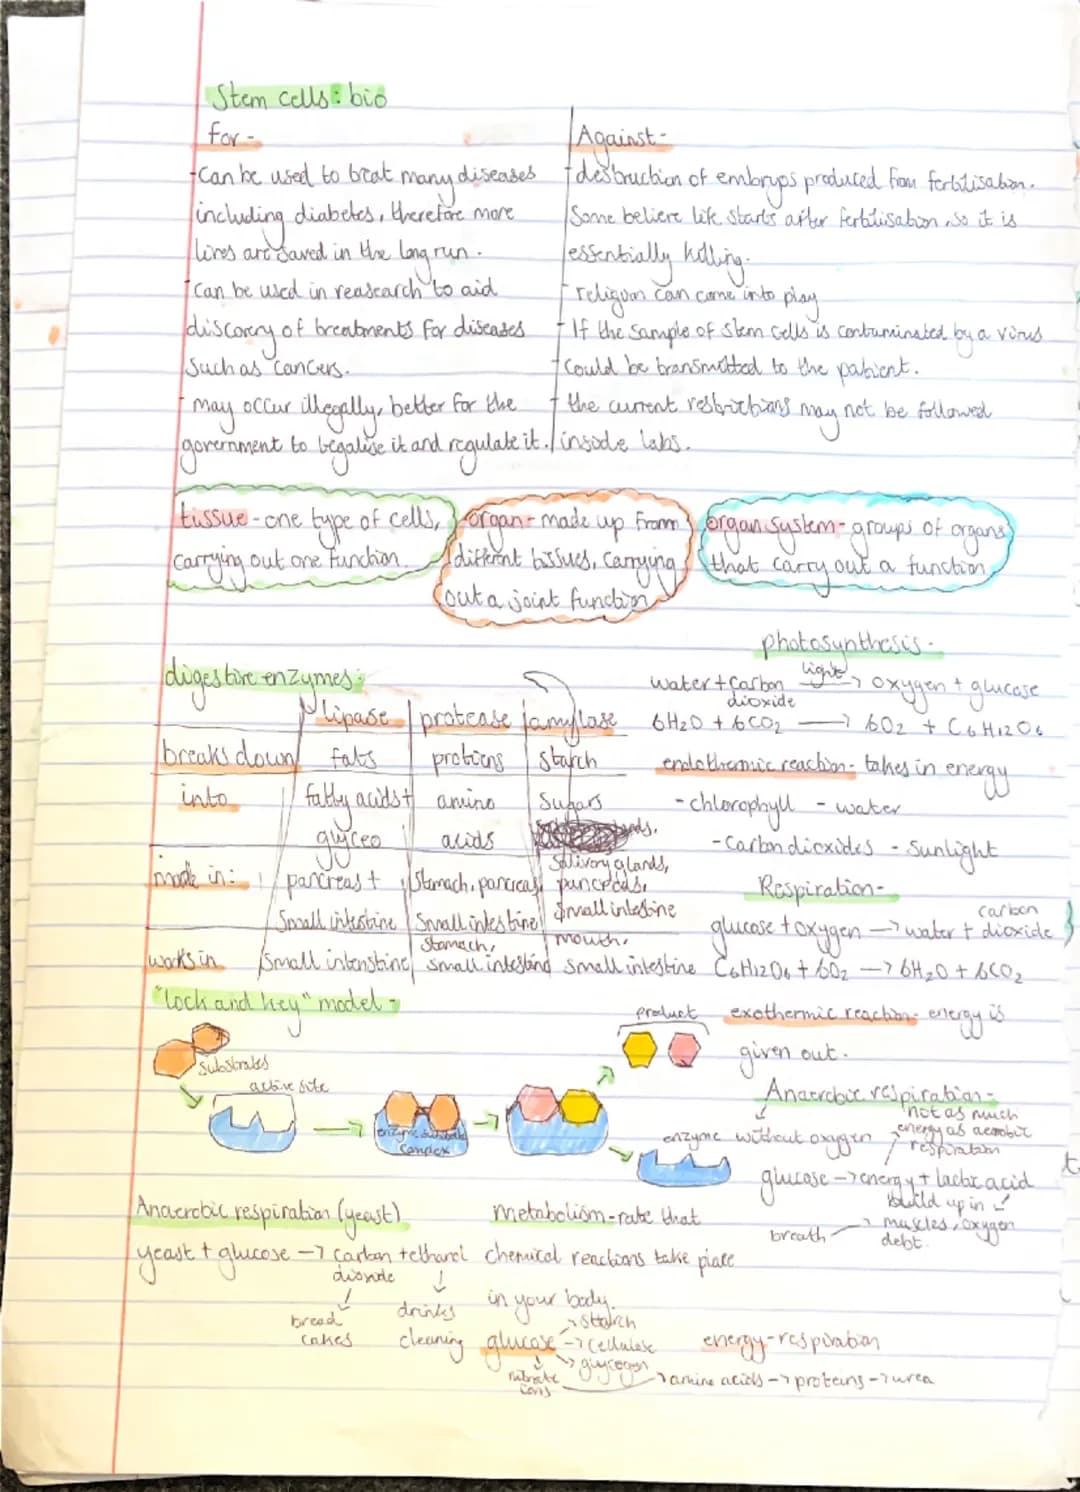 Stem cells: bio
for -
-Can be used to treat many diseases
including diabetes, therefore more
lives are saved in the long run.
- can be used in reasearch to aid
discovery of treatments for diseases
Such as cancers.
- may occur illegally, better for the
government to legalise it and regulate it.
Against-
- destruction of embryos produced from fertilisation.
Some believe life starts after fertilisation, so it is
essentially killing.
- religion can come into play
- If the sample of stem cells is contaminated by a virus
- could be transmitted to the patient.
- the current restrictions may not be followed
inside labs.
tissue - one type of cells,
carrying out one function.
organ - made up from
different tissues, carrying
out a joint function
organ system - groups of organs
that carry out a function
digestive enzymes:
lipase protease amylase
breaks down fats proteins starch
into fatty acids + amino sugars
glyceo acids
made in: pancreas + Stomach, pancreas, Salivary glands, pancreas,
Small intestine Small intestine Small intestine
works in small intenstine stomach, small intestine mouth, small intestine
photosynthesis.
water + carbon dioxide light → oxygen + glucose
6H2O + 6CO2 → 6O2 + C6H12O6
endothermic reaction - takes in energy
- chlorophyll - water
- Carbon dioxides - sunlight
Respiration -
glucose + oxygen → water + carbon dioxide
C6H12O6 + 6O2 → 6H2O + 6CO2
exothermic reaction - energy is
given out.
"lock and key" model -
substrates
active site
enzyme substrate
complex
product
enzyme
Anaerobic respiration -
without oxygen
not as much
energy as aerobic
respiration
glucose → energy + lactic acid
build up in
muscles, oxygen
debt.
breath
Anaerobic respiration (yeast)
yeast + glucose → carbon dioxide + ethanol
bread
cakes
drinks
cleaning
metabolism - rate that
chemical reactions take place
in your body.
glucose → starch
→ cellulose
→ glycogen
nitrate
ions
→ amino acids → proteins → urea
energy - respiration